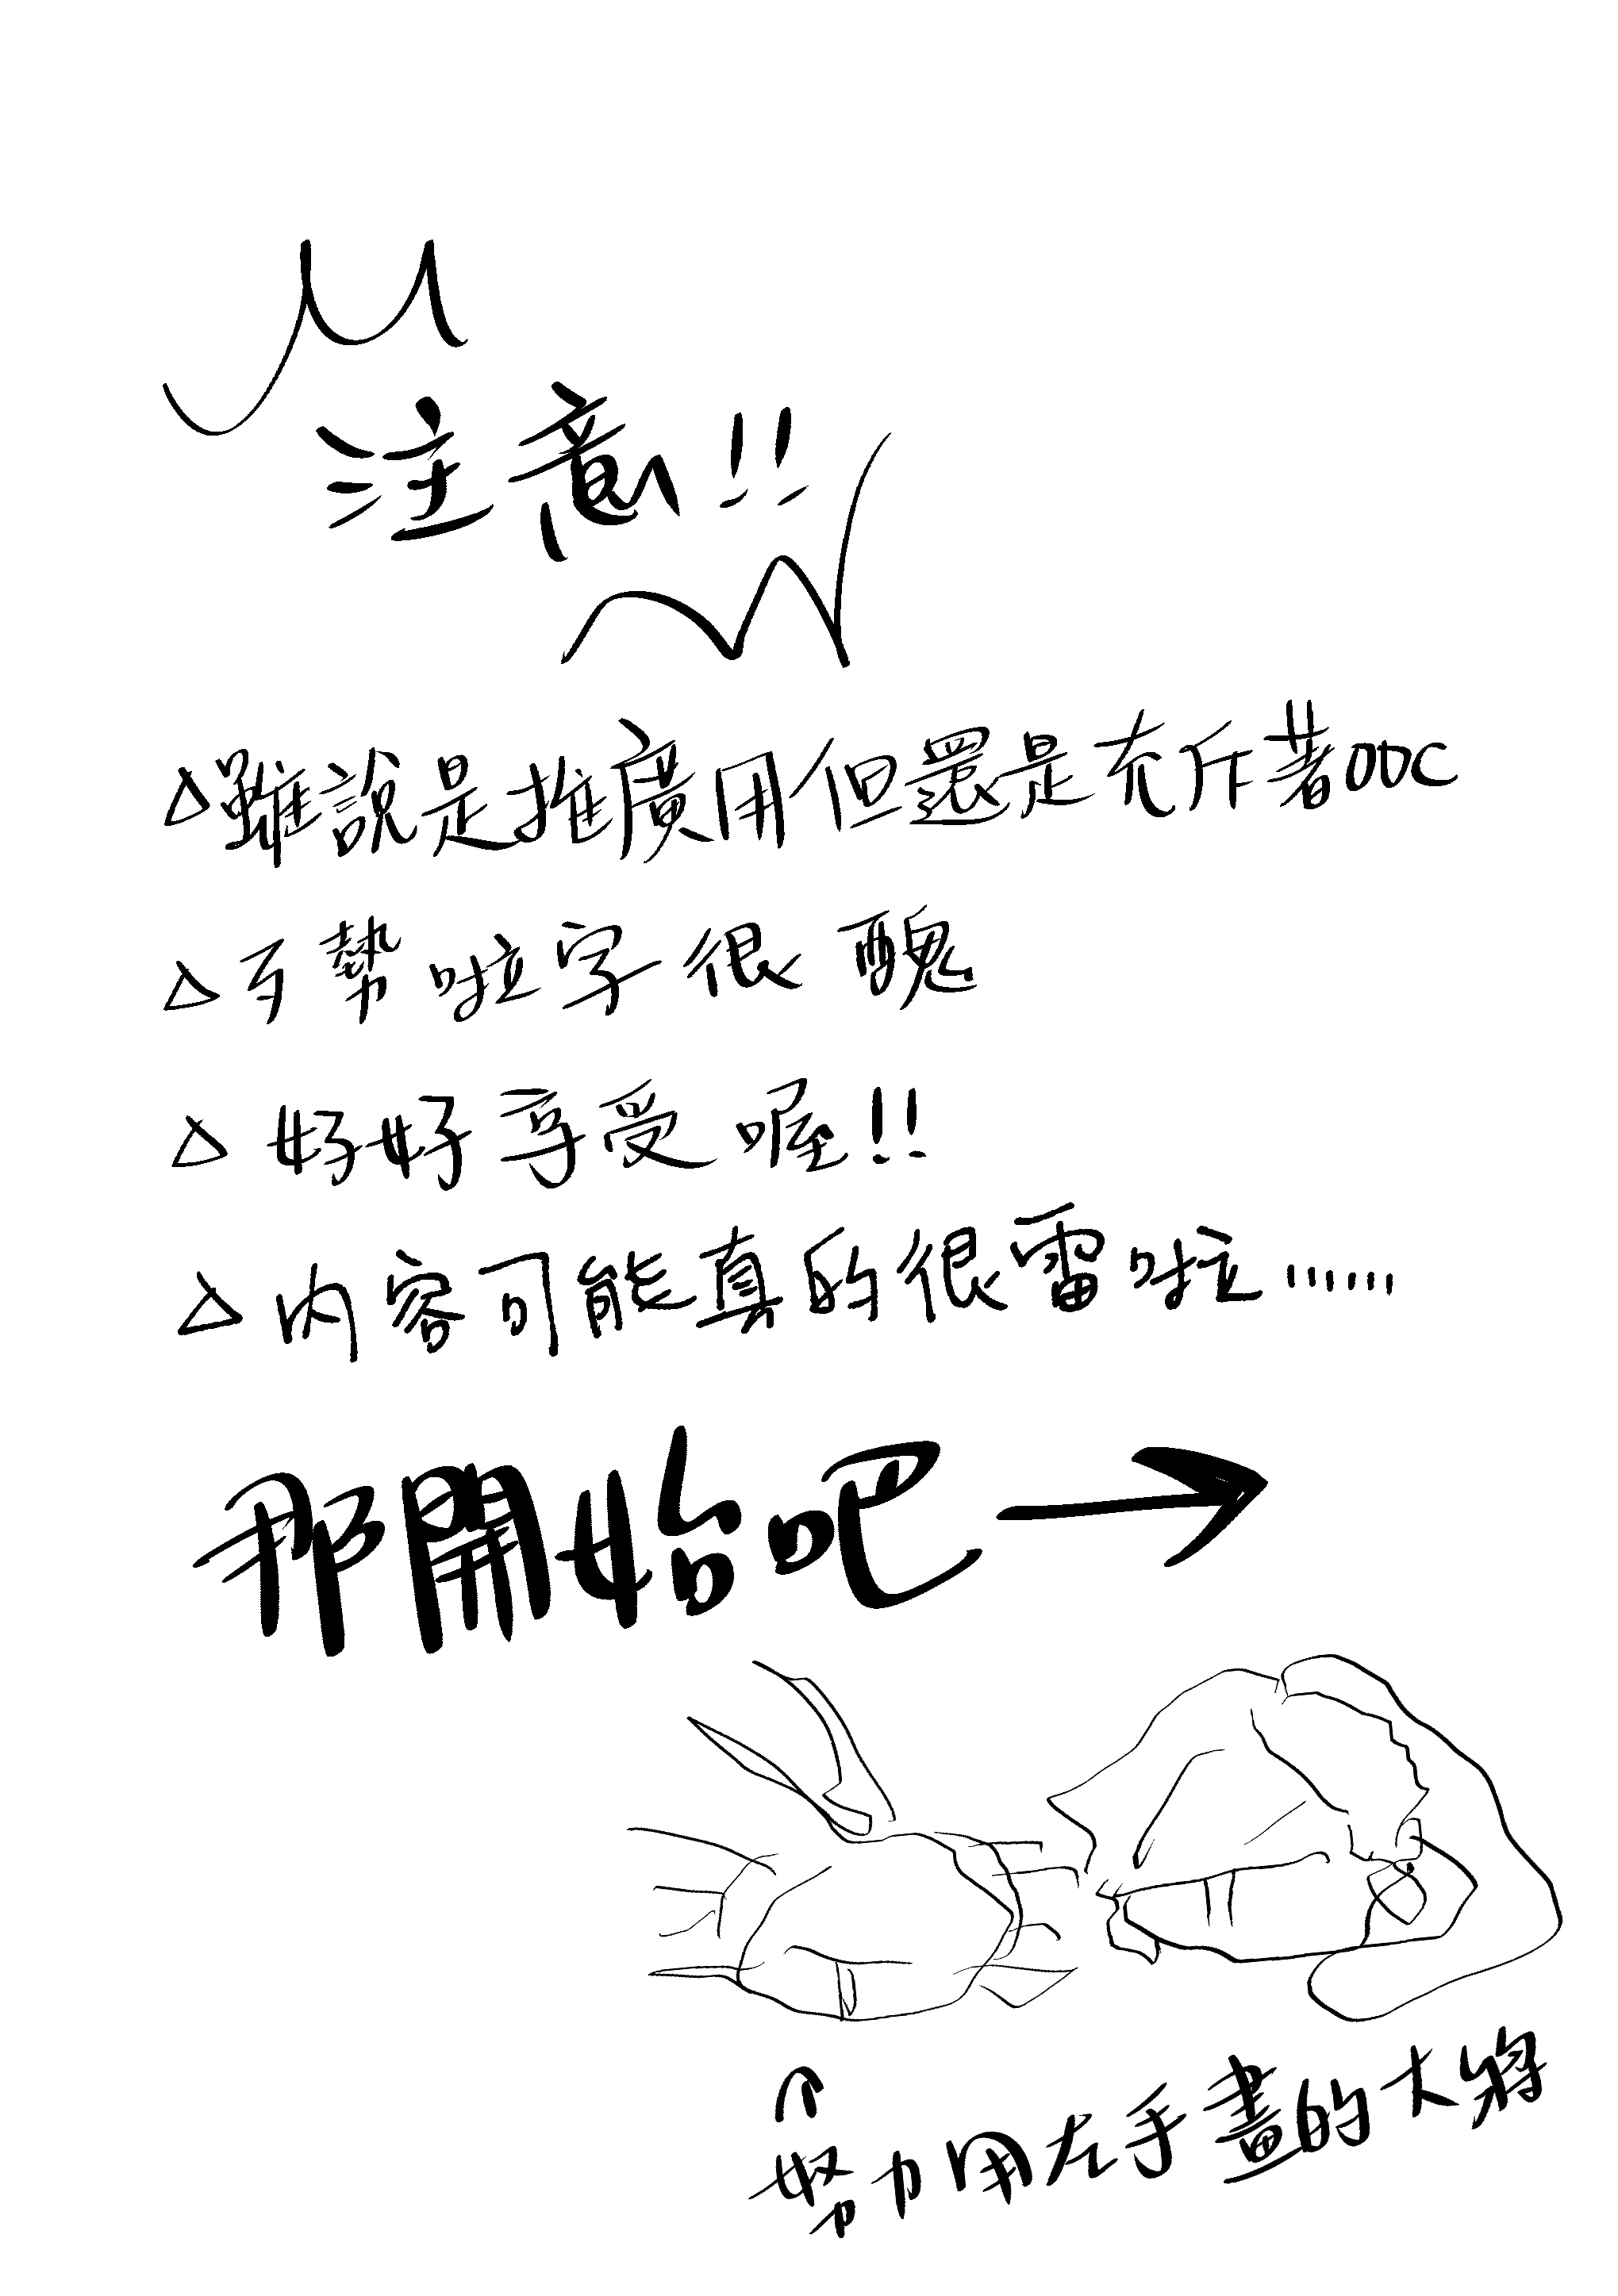 注意!!
△雖說是推廣用但還是充斥著OOC
△歹勢啦字很醜
△好好享受喔!!
△內容可能真的很雷啦……
那開始吧→
努力用左手畫的大將